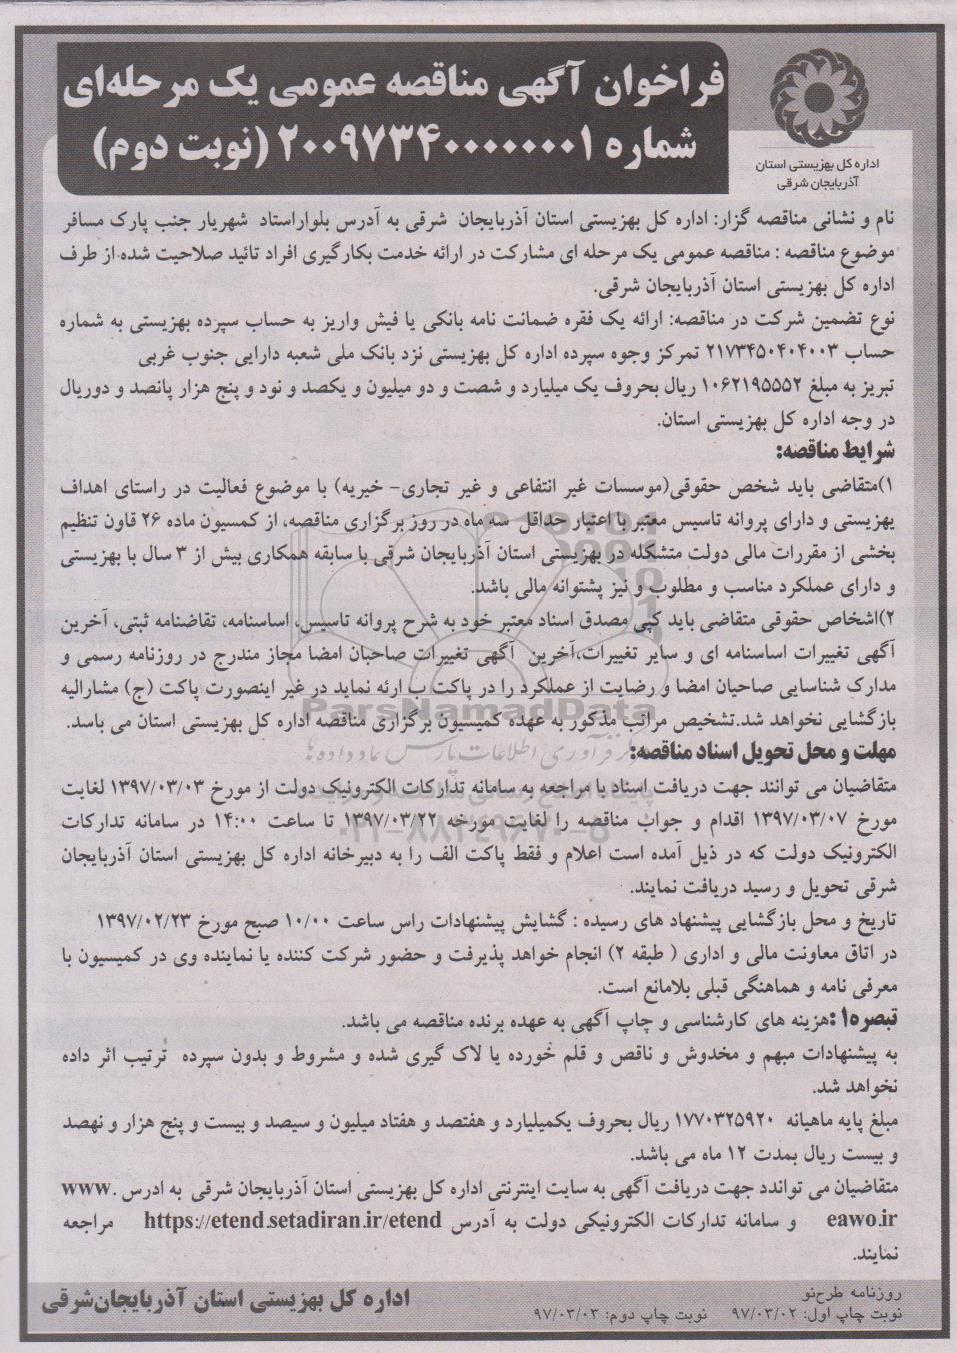 فراخوان آگهی مناقصه عمومی یک مرحله‌ای
شماره ۲۰۰۹۷۳۴۰۰۰۰۰۰۰۱ (نوبت دوم)
اداره کل بهزیستی استان
آذربایجان شرقی
نام و نشانی مناقصه گزار: اداره کل بهزیستی استان آذربایجان شرقی به آدرس بلواراستاد شهریار جنب پارک مسافر
موضوع مناقصه : مناقصه عمومی یک مرحله ای مشارکت در ارائه خدمت بکارگیری افراد تائید صلاحیت شده از طرف
اداره کل بهزیستی استان آذربایجان شرقی.
نوع تضمین شرکت در مناقصه: ارائه یک فقره ضمانت نامه بانکی یا فیش واریز به حساب سپرده بهزیستی به شماره
حساب ۲۱۷۳۴۵۰۴۰۴۰۰۳ تمرکز وجوه سپرده اداره کل بهزیستی نزد بانک ملی شعبه دارایی جنوب غربی
تبریز به مبلغ ۱۰۶۲۱۹۵۵۵۲ ریال بحروف یک میلیارد و شصت و دو میلیون و یکصد و نود و پنج هزار پانصد و دوریال
در وجه اداره کل بهزیستی استان.
شرایط مناقصه:
۱)متقاضی باید شخص حقوقی(موسسات غیر انتفاعی و غیر تجاری- خیریه) با موضوع فعالیت در راستای اهداف
بهزیستی و دارای پروانه تاسیس معتبر با اعتبار حداقل سه ماه در روز برگزاری مناقصه، از کمسیون ماده ۲۶ قاون تنظیم
بخشی از مقررات مالی دولت متشکله در بهزیستی استان آذربایجان شرقی با سابقه همکاری بیش از ۳ سال با بهزیستی
و دارای عملکرد مناسب و مطلوب و نیز پشتوانه مالی باشد.
۲)اشخاص حقوقی متقاضی باید کپی مصدق اسناد معتبر خود به شرح پروانه تاسیس، اساسنامه، تقاضنامه ثبتی، آخرین
آگهی تغییرات اساسنامه ای و سایر تغییرات،آخرین آگهی تغییرات صاحبان امضا مجاز مندرج در روزنامه رسمی و
مدارک شناسایی صاحبان امضا و رضایت از عملکرد را در پاکت ب ارئه نماید در غیر اینصورت پاکت (ج) مشارالیه
بازگشایی نخواهد شد.تشخیص مراتب مذکور به عهده کمیسیون برگزاری مناقصه اداره کل بهزیستی استان می باسد.
ParsNamadData
مهلت و محل تحویل اسناد مناقصه:
متقاضیان می توانند جهت دریافت اسناد با مراجعه به سامانه تدارکات الکترونیک دولت از مورخ ۱۳۹۷/۰۳/۰۳ لغایت
مورخ ۱۳۹۷/۰۳/۰۷ اقدام و جواب مناقصه را لغایت مورخه ۱۳۹۷/۰۳/۲۲ تا ساعت ۱۴:۰۰ در سامانه تدارکات
۰۲۱-۸۸۳۴۹۶۷۰-۵
الکترونیک دولت که در ذیل آمده است اعلام و فقط پاکت الف را به دبیرخانه اداره کل بهزیستی استان آذربایجان
شرقی تحویل و رسید دریافت نمایند.
تاریخ و محل بازگشایی پیشنهاد های رسیده : گشایش پیشنهادات راس ساعت ۱۰/۰۰ صبح مورخ ۱۳۹۷/۰۲/۲۳
در اتاق معاونت مالی و اداری ( طبقه ۲) انجام خواهد پذیرفت و حضور شرکت کننده یا نماینده وی در کمیسیون با
معرفی نامه و هماهنگی قبلی بلامانع است.
تبصره۱ :هزینه های کارشناسی و چاپ آگهی به عهده برنده مناقصه می باشد.
به پیشنهادات مبهم و مخدوش و ناقص و قلم خورده یا لاک گیری شده و مشروط و بدون سپرده ترتیب اثر داده
نخواهد شد.
مبلغ پایه ماهیانه ۱۷۷۰۳۲۵۹۲۰ ریال بحروف یکمیلیارد و هفتصد و هفتاد میلیون و سیصد و بیست و پنج هزار و نهصد
و بیست ریال بمدت ۱۲ ماه می باشد.
متقاضیان می تواندد جهت دریافت آگهی به سایت اینترنتی اداره کل بهزیستی استان آذربایجان شرقی به ادرس www.
eawo.ir و سامانه تدارکات الکترونیکی دولت به آدرس https://etend.setadiran.ir/etend مراجعه
نمایند.
روزنامه طرح‌نو
نوبت چاپ اول: ۹۷/۰۳/۰۲ نوبت چاپ دوم: ۹۷/۰۳/۰۳
اداره کل بهزیستی استان آذربایجان‌شرقی